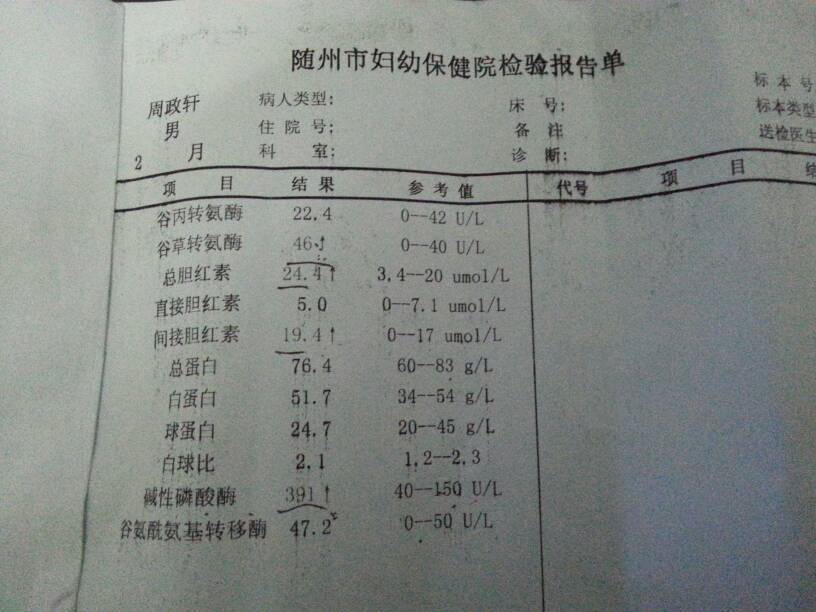 随州市妇幼保健院检验报告单
周政轩 病人类型: 床 号: 标 本 号
男 住 院 号: 备 注 标本类型
2 月 科 室: 诊 断: 送检医生
项 目 结 果 参 考 值 代号 项 目
谷丙转氨酶 22.4 0--42 U/L
谷草转氨酶 46↑ 0--40 U/L
总胆红素 24.4↑ 3.4--20 umol/L
直接胆红素 5.0 0--7.1 umol/L
间接胆红素 19.4↑ 0--17 umol/L
总蛋白 76.4 60--83 g/L
白蛋白 51.7 34--54 g/L
球蛋白 24.7 20--45 g/L
白球比 2.1 1.2--2.3
碱性磷酸酶 391↑ 40--150 U/L
谷氨酰氨基转移酶 47.2 0--50 U/L